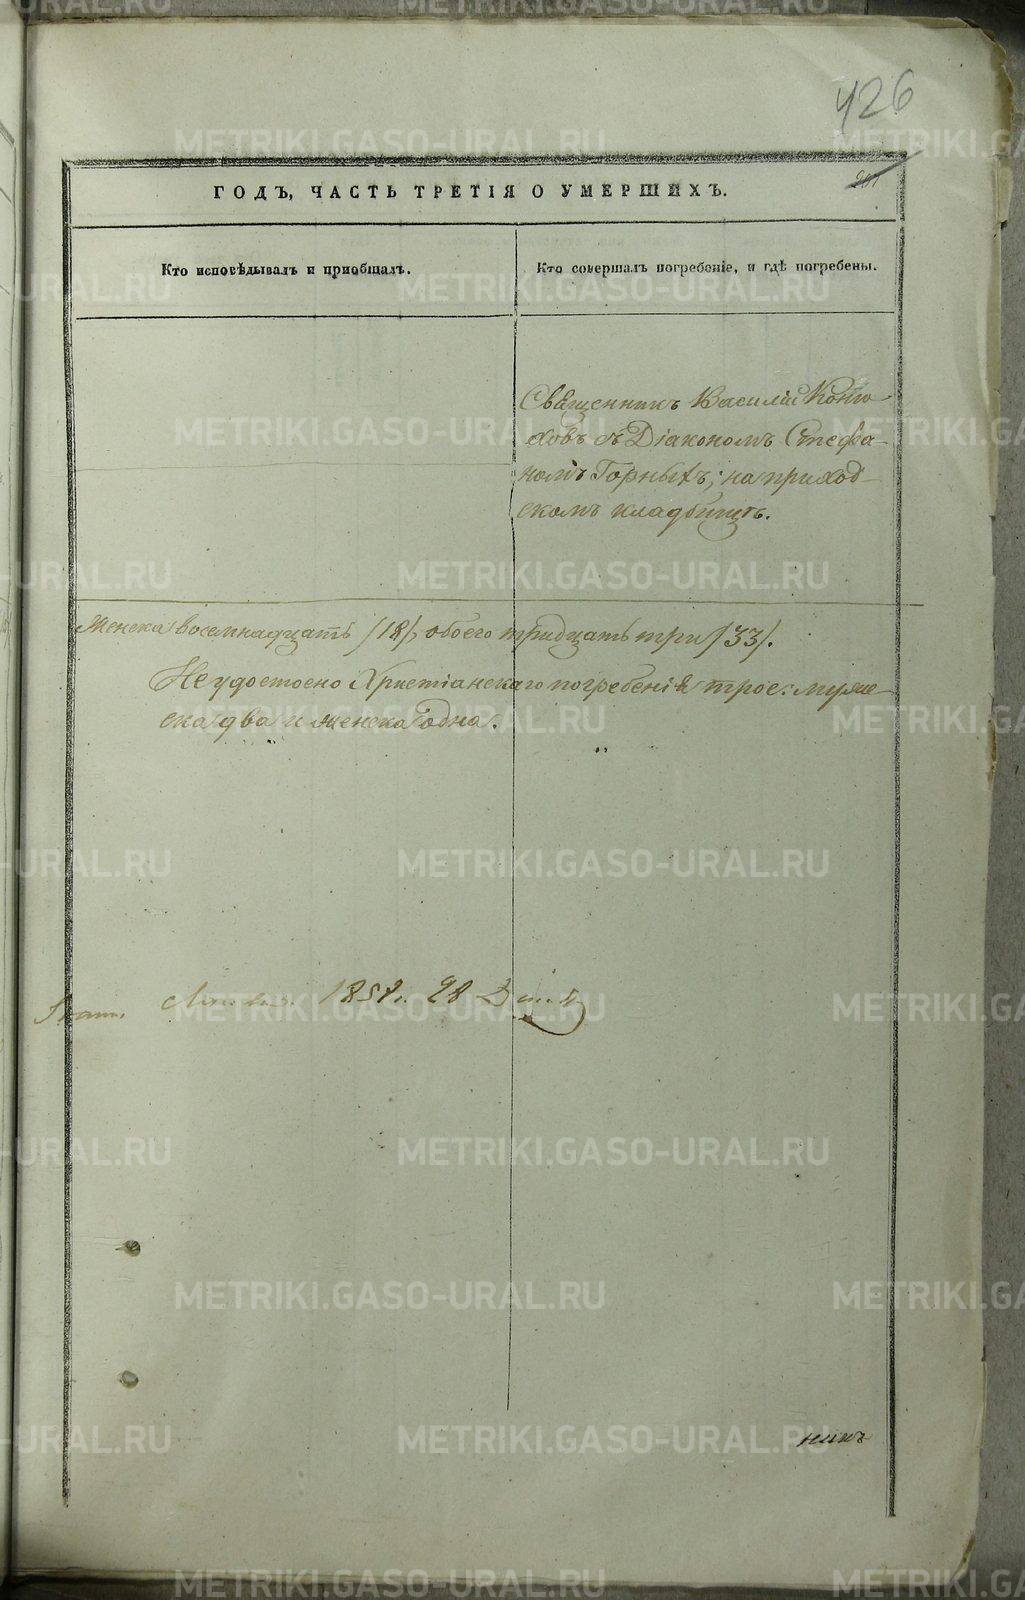 426
201
ГОДЪ, ЧАСТЬ ТРЕТІЯ О УМЕРШИХЪ.
Кто исповѣдывалъ и пріобщалъ.
Кто совершалъ погребеніе, и гдѣ погребены.
Священникъ Василій Коню-
ховъ съ Діакономъ Стефа-
номъ Горныхъ; на приход-
скомъ кладбищѣ.
Женска восемнадцать /18/, обоего тридцать три /33/.
Неудостоено Христіанскаго погребенія трое: муже-
ска два и женска одна.
1858. 28
никъ
METRIKI.GASO-URAL.RU